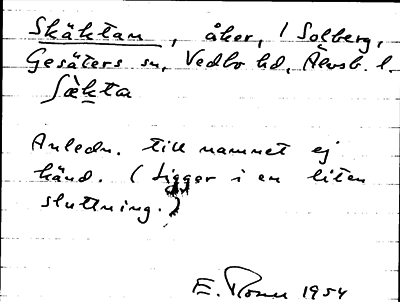 Skäktan, åker, / Solberg,
Gesäters sn, Vedbo hd, Älvsb. l.
ʃæ̀kta
Anledn. till namnet ej
känd. (Ligger i en liten
sluttning.)
E. 1954